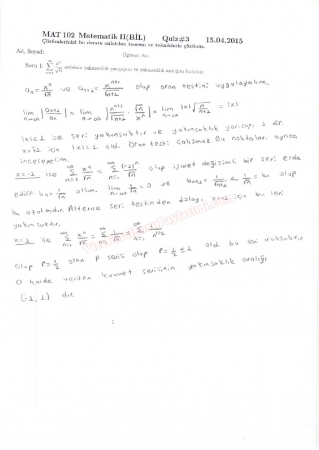 MAT 102 Matematik II(BİL) Quiz#3 15.04.2015
Çözümlerinizi bu derste anlatılan tanım ve tekniklerle çözünüz.
Ad, Soyad: Öğrenci No:
Soru 1: ∑ xⁿ/√n serisinin yakınsaklık yarıçapını ve yakınsaklık aralığını bulunuz.
aₙ = xⁿ/√n ve aₙ₊₁ = xⁿ⁺¹/√n+1 olup oran testini uygulayalım.
lim n→∞ |aₙ₊₁/aₙ| = lim n→∞ |xⁿ⁺¹/√n+1 · √n/xⁿ| = lim n→∞ |x| √n/n+1 = |x|
|x|<1 ise seri yakınsaktır ve yakınsaklık yarıçapı 1 dir.
x=∓1 için |x|=1 old. Oran testi çalışmaz Bu noktaları ayrıca
inceleyelim.
x=-1 ise ∑ xⁿ/√n = ∑ (-1)ⁿ/√n olup işaret değişimli bir seri elde
edilir. bₙ = 1/√n olsun. lim n→∞ 1/√n = 0 ve bₙ₊₁ = 1/√n+1 < 1/√n = bₙ olup
bₙ azalandır. Alterne seri testinden dolayı, x=-1 için bu seri
yakınsaktır.
x=1 ise ∑ xⁿ/√n = ∑ 1/√n = ∑ 1/n^1/2
olup p=1/2 olan p seris olup p=1/2 ≤ 1 old. bu seri ıraksaktır.
O halde verilen kuvvet serisinin yakınsaklık aralığı
[-1, 1) dir.